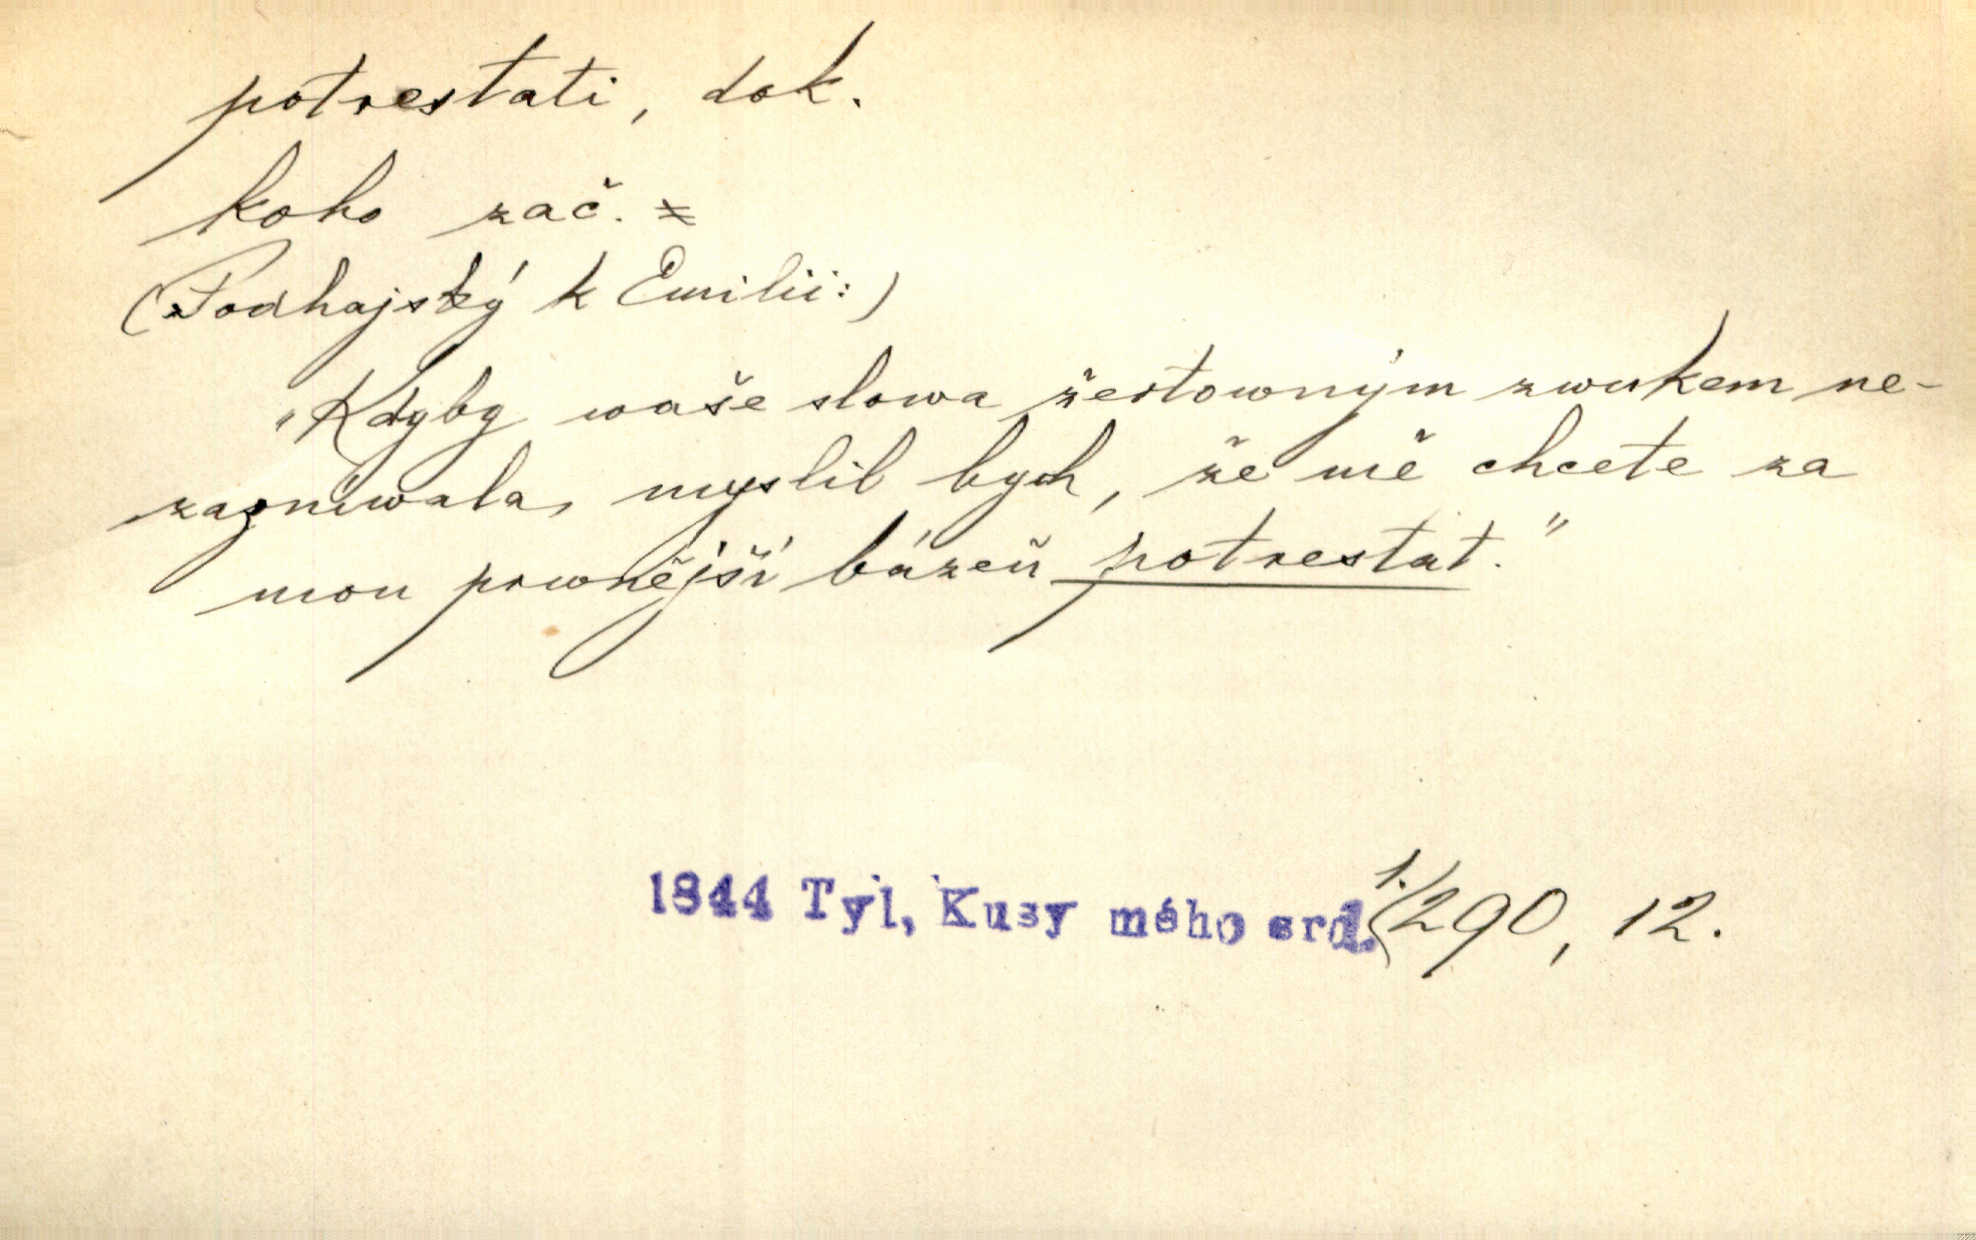 potrestati, dok.
koho zač. ≠
(Podhajský k Emilii:)
„Kdyby waše slowa žertowným zwukem ne-
zazníwala, myslil bych, že mě chcete za
mou prwnější bázeň potrestat."
1844 Tyl, Kusy mého srd. 1./290, 12.